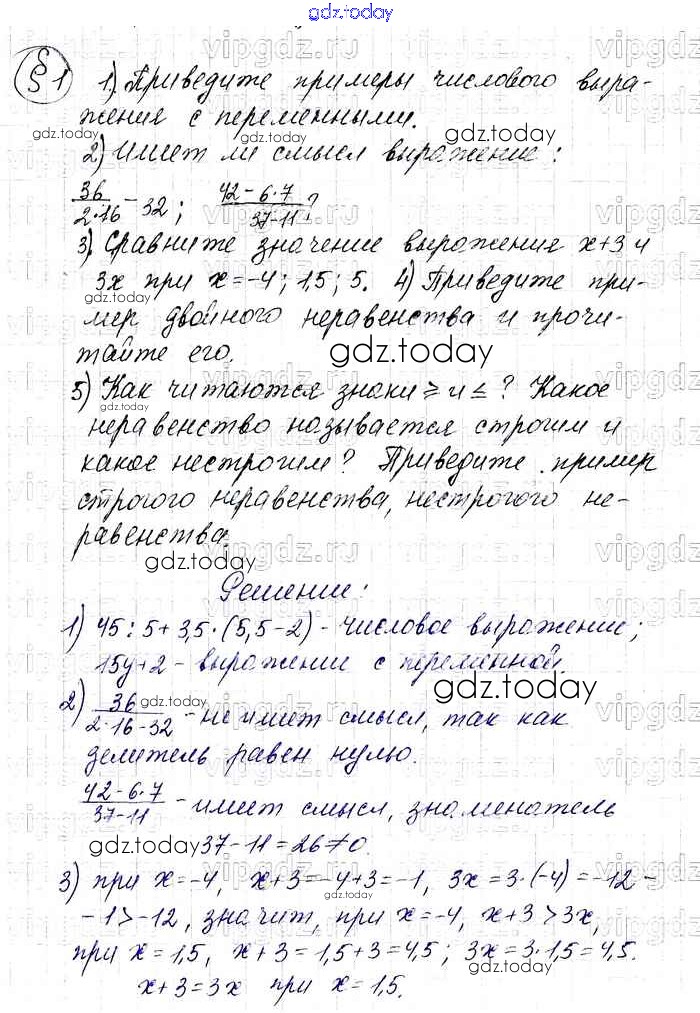 gdz.today
§1 1) Приведите примеры числового выра-
жения с переменными.
2) Имеет ли смысл выражение:
36/2·16 - 32; 42-6·7/37-11?
3) Сравните значение выражения x+3 и
3x при x=-4; 1,5; 5. 4) Приведите при-
мер двойного неравенства и прочи-
тайте его.
5) Как читаются знаки ≥ и ≤? Какое
неравенство называется строгим и
какое нестрогим? Приведите пример
строгого неравенства, нестрогого не-
равенства.
Решение:
1) 45:5+3,5·(5,5-2) - числовое выражение;
15y+2 - выражении с переменной.
2) 36/2·16-32 - не имеет смысл, так как
делитель равен нулю.
42-6·7/37-11 - имеет смысл, знаменатель
37-11=26≠0.
3) при x=-4, x+3=-4+3=-1, 3x=3·(-4)=-12-
-1>-12, значит, при x=-4, x+3>3x,
при x=1,5, x+3=1,5+3=4,5; 3x=3·1,5=4,5.
x+3=3x при x=1,5.